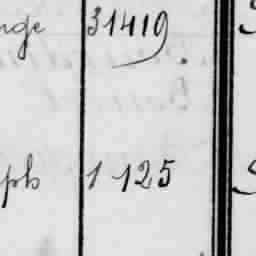 nge 31419
ph 1 125